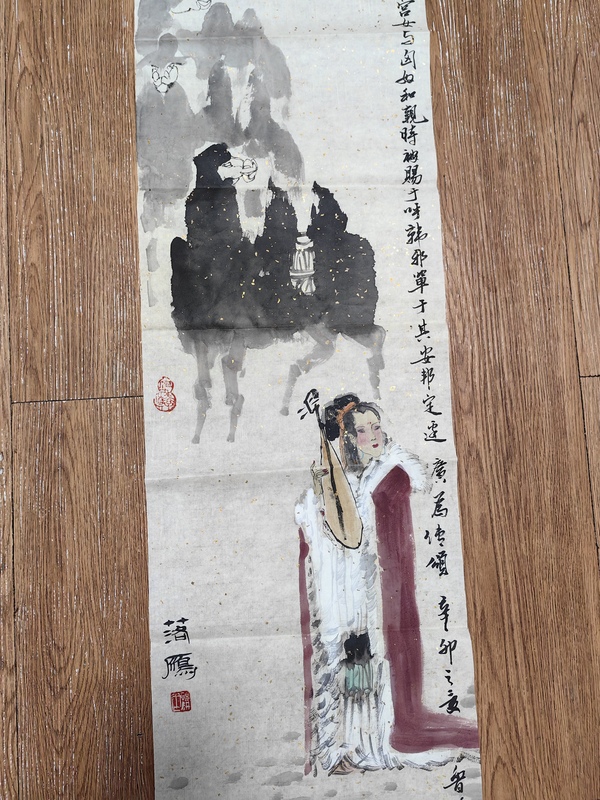 宫女与匈奴和親時被賜于呼韩邪單于其安邦定边廣為传頌 辛卯之夏
魯
落鴈